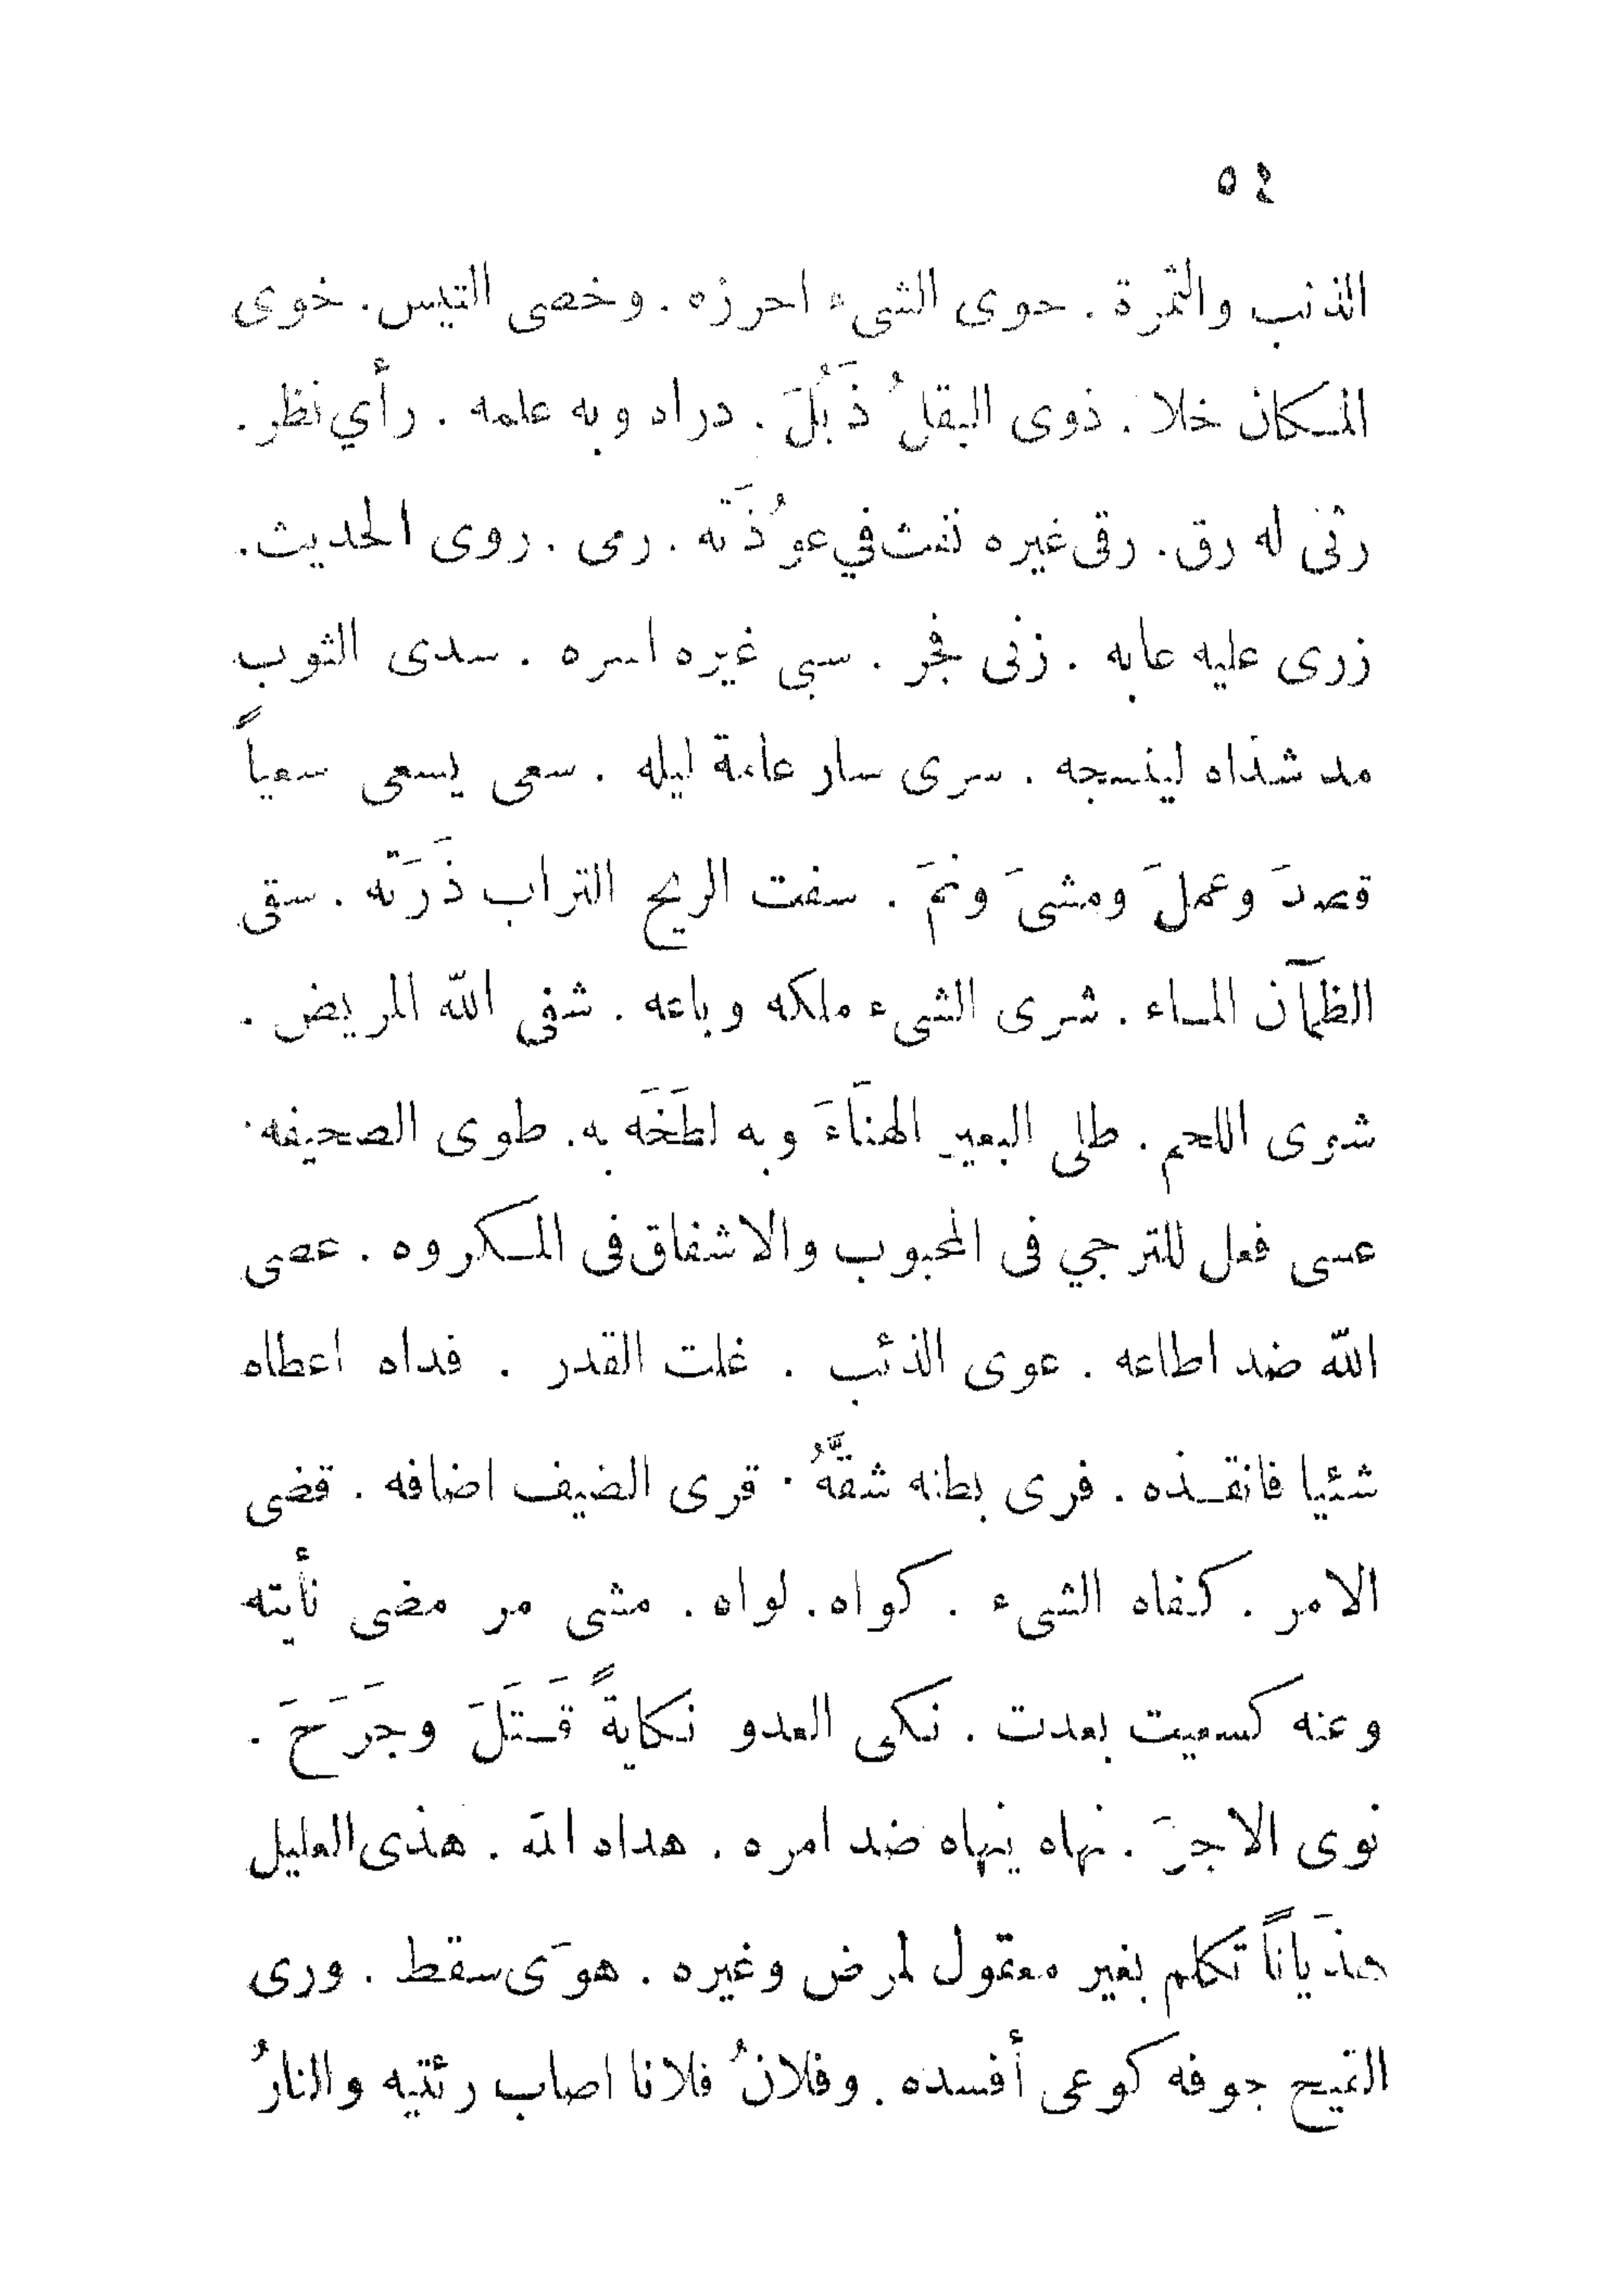 ٥٤
الذنب والثمرة . حوى الشيء احرزه . وخصى التيس . خوى
المكان خلا . ذوى البقلُ ذَبُلَ . دراه وبه علمه . رأي نظر .
رثى له رق . رقى غيره نفث في عوُذَته . رمى . روى الحديث .
زرى عليه عابه . زنى فجر . سبى غيره اسره . سدى الثوب
مد شذاه لينسجه . سرى سار عامة ليله . سعى يسعى سعياً
قصدَ وعملَ ومشىَ ونمَ . سفت الريح التراب ذَرَته . سقى
الظمآن الماء . شرى الشيء ملكه وباعه . شفى الله المريض .
شوى اللحم . طلى البعير الهنَاءَ وبه لطَخَه به . طوى الصحيفه .
عسى فعل للترجي فى المحبوب والاشفاق فى المكروه . عصى
الله ضد اطاعه . عوى الذئب . غلت القدر . فداه اعطاه
شئيا فانقذه . فرى بطنه شقَّهُ . قرى الضيف اضافه . قضى
الامر . كفاه الشىء . كواه . لواه . مشى مر مضى نأيته
وعنه كسعيت بعدت . نكى العدو نكايةً قَتَلَ وجَرَحَ .
نوى الاجرَ . نهاه ينهاه ضد امره . هداه الله . هذى العليل
هذَياناً تكلم بغير معقول لمرض وغيره . هوَى سقط . ورى
القيح جوفه كوعى أفسده . وفلانُ فلانا اصاب رئتيه والنارُ